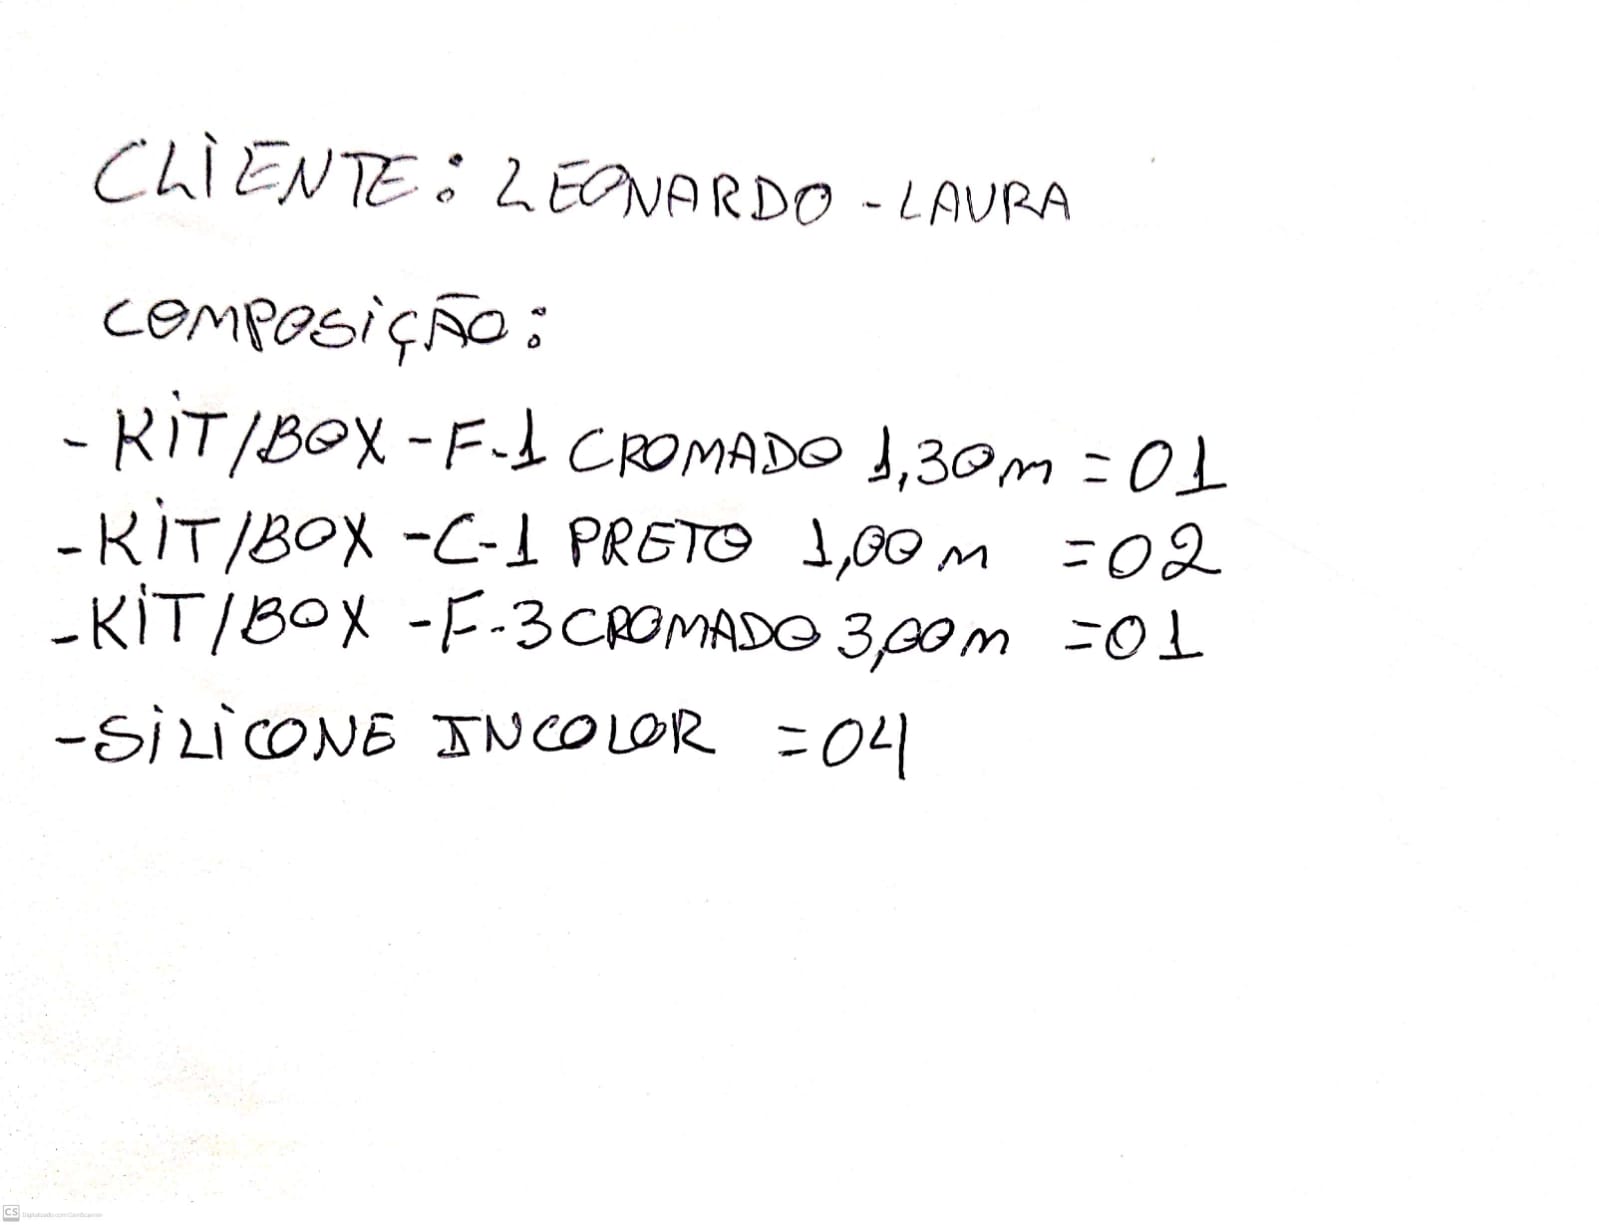 CLIENTE: LEONARDO - LAURA
COMPOSIÇÃO:
- KIT/BOX - F-1 CROMADO 1,30m = 01
- KIT/BOX - C-1 PRETO 1,00m = 02
- KIT/BOX - F-3 CROMADO 3,00m = 01
- SILICONE INCOLOR = 04
CS Digitalizado com CamScanner